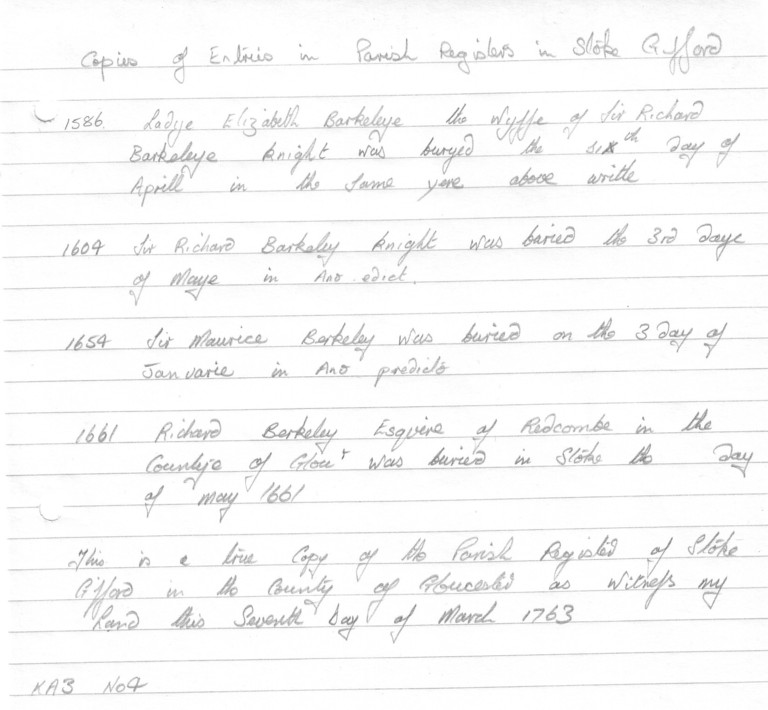 Copies of Entries in Parish Registers in Stoke Gifford
1586. Ladye Elizabeth Barkeleye the Wyffe of Sir Richard
Barkeleye knight was buryed the sixth day of
Aprill in the same yere above writte
1604 Sir Richard Barkeley knight was baried the 3rd daye
of Maye in Ano edict.
1654 Sir Maurice Berkeley was buried on the 3 day of
Januarie in Ano predicto
1661 Richard Berkeley Esquire of Redcombe in the
Countye of Glour was buried in Stoke the day
of may 1661
This is a true Copy of the Parish Register of Stoke
Gifford in the County of Gloucester as Witness my
Land this Seventh Day of March 1763
KA3 No4